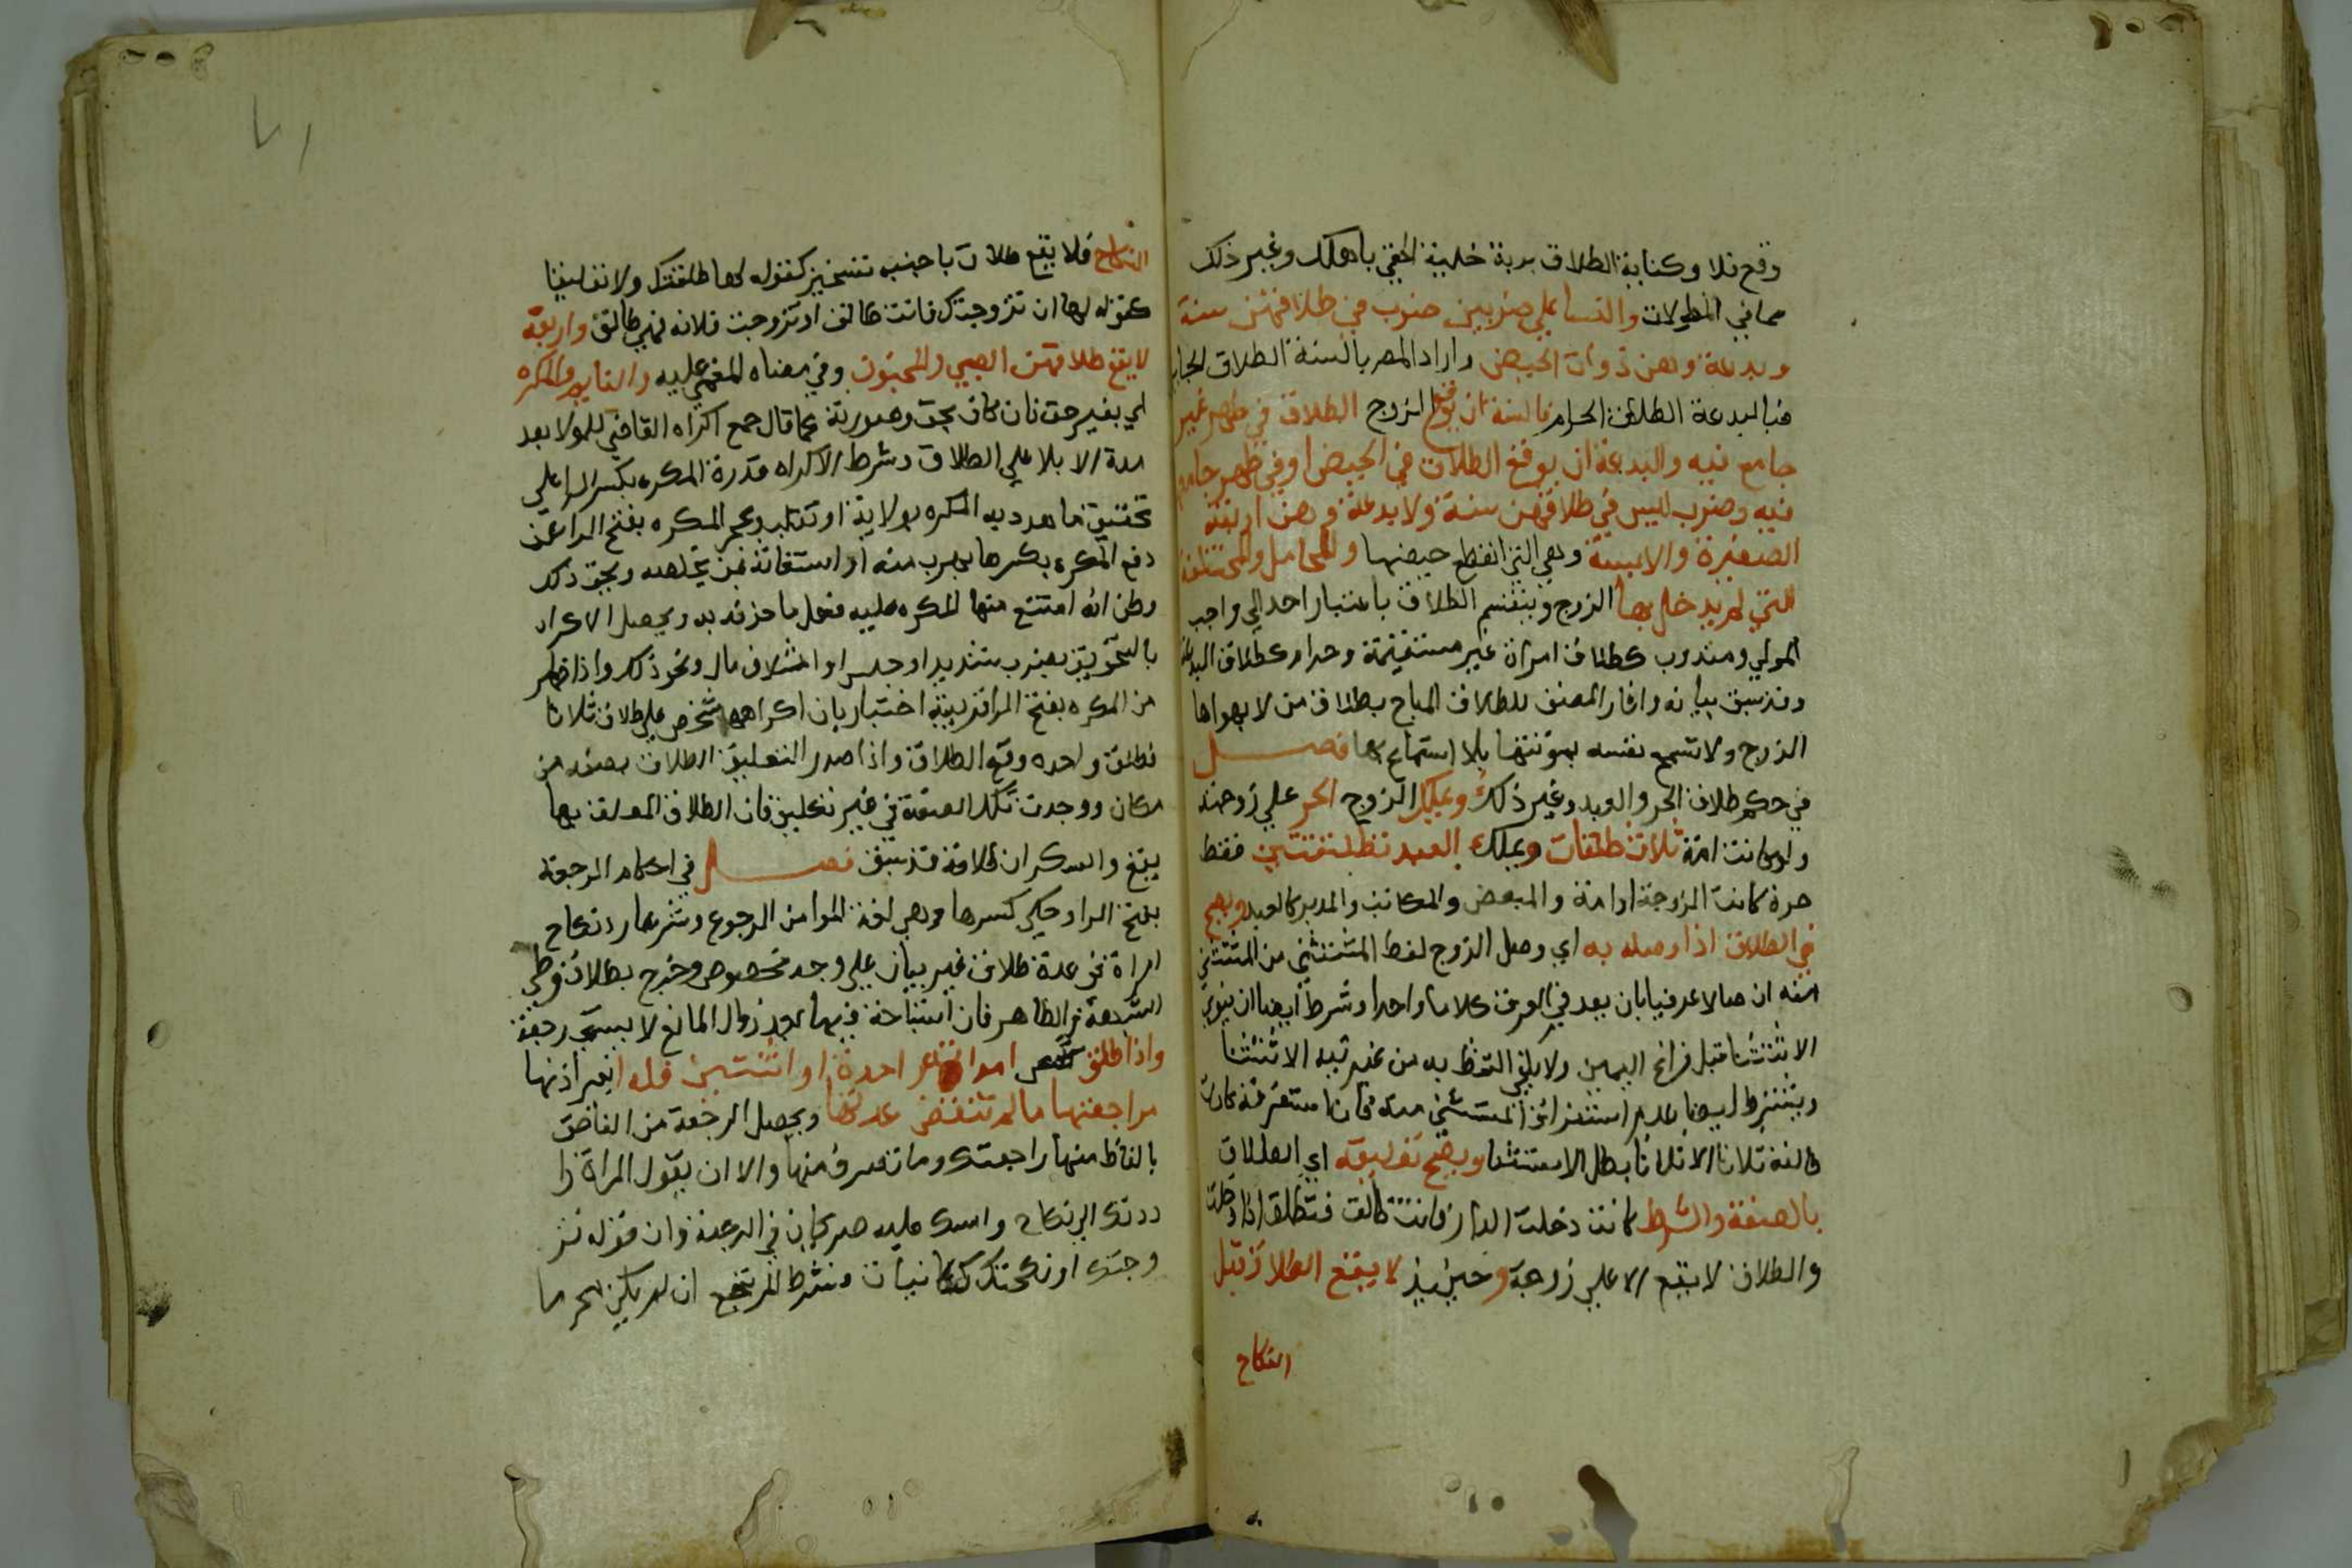 وقع فلا وكناية الطلاق برية خلية الحقي باهلك وغير ذلك
مما في المطولات والنسا علي ضربين ضرب في طلاقهن سنة
وبدعة وهن ذوات الحيض واراد المصر بالسنة الطلاق الجايز
فبالبدعة الطلاق الحرام فالسنة ان يوقع الزوج الطلاق في طهر غير
جامع فيه والبدعة ان يوقع الطلاق في الحيض او في طهر جامع
فيه وضرب ليس في طلاقهن سنة ولا بدعة وهن اربعة
الصغيرة والايسة وهي التي انقطع حيضها والحامل والمختلعة
التي لم يدخل بها الزوج وينقسم الطلاق باعتبار احد الي واجب
المولي ومندوب كطلاق امراة غير مستقيمة وحرام كطلاق البدعة
وقد سبق بيانه واشار المصنف للطلاق المباح بطلاق من لا يهواها
الزوج ولا تسمح نفسه بمؤنتها بلا استمتاع بها فصل
في حكم طلاق الحر والعبد وغير ذلك ويملك الزوج الحر علي زوجته
ولو كانت امة ثلاث طلقات ويملك العبد تطليقتين فقط
حرة كانت الزوجة او امة والمبعض والمكاتب والمدبر كالعبد ويصح
في الطلاق اذا وصله به اي وصل الزوج لفظ المستثني من المستثني
منه اتصالا عرفيا بان يعد في العرف كلاما واحدا وشرط ايضا ان ينوي
الاستثنا قبل فراغ اليمين ولا يكفي التلفظ به من غير نية الاستثنا
ويشترط ايضا عدم استغراق المستثني منه فان استغرقه كانت
طالقة ثلاثا الا ثلاثا بطل الاستثنا ويصح تعليقه اي الطلاق
بالصفة والشرط كانت دخلت الدار فانت طالق فتطلق اذا دخلت
والطلاق لا يقع الا علي زوجة وحينيذ لا يقع الطلاق قبل
النكاح
النكاح فلا يقع طلاق باجنبيه تنجيز كقوله لها طلقتك ولا تعليقا
كقوله لها ان تزوجتك فانت طالق او تزوجت فلانه فهي طالق واربعة
لا يقع طلاقهن الصبي والمجنون وفي معناه المغمي عليه والنايم والمكره
اي بغير حق فان كان بحق وصورته كما قال جمع اكراه القاضي للمولا بعد
مدة الايلا علي الطلاق وشرط الاكراه قدرة المكره بكسر الرا علي
تحقيق ما هدد به المكره بولاية او تغلب وعجز المكره بفتح الرا عن
دفع المكره بكسرها بهرب منه او استغاثة بمن يخلصه ونحو ذلك
وظن انه امتنع منها المكره عليه فعل ما خوفه به ويحصل الاكراه
بالتخويف بضرب شديد او حبس او اتلاف مال ونحو ذلك واذا ظهر
من المكره بفتح الرا قرينة اختيار بان اكراهه شخص علي طلاق ثلاثا
فطلق واحده وقع الطلاق واذا صدر التعليق الطلاق بصفه من
مكان ووجدت تلك الصفة في غير تعليق فان الطلاق المعلق بها
يقع والسكران طلاقه قد سبق فصل في احكام الرجعة
بفتح الرا وحكي كسرها وهي لغة المرا من الرجوع وشرعا رد نكاح
امراة في عدة طلاق غير باين علي وجه مخصوص وخرج بطلاق وطي
الشبهة والظاهر فان استباحة فيها بعد زوال المانع لا يسمي رجعة
واذا طلق شخص امراته واحدة او اثنتين فله بغير اذنها
مراجعتها ما لم تنقض عدتها ويحصل الرجعة من الناطق
بالفاظ منها راجعتك وما تصرف منها والا ان يقول المراة را
ددتك الي نكاح وامسك عليه صريحان في الرجعة وان قوله تز
وجتك او نكحتك كنايتان وشرط المرتجع ان لم يكن محرما